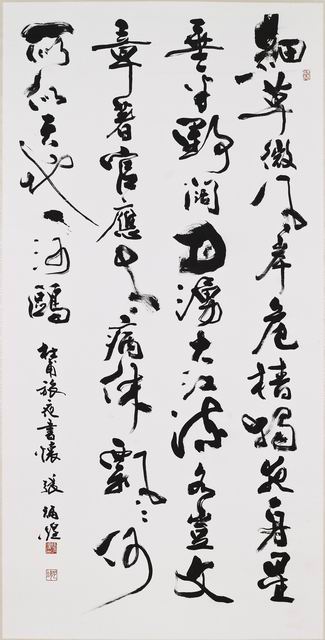 細草微風岸危檣獨夜舟星
垂平野闊月湧大江流名豈文
章著官應老病休飄〻何
所似天地一沙鷗
杜甫旅夜書懷 張炳煌